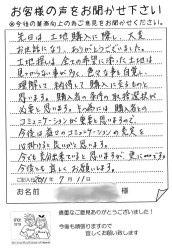 お客様の声をお聞かせ下さい
※今後の業務向上の為ご意見をお聞かせください。
先日は土地購入に際し、大変
お世話になり、ありがとうございました。
土地探しは全ての希望に添った土地は
見つからない事が多く、色々な事を自覚し、
理解して納得して購入に至るものだと
思います。購入者の条件の取捨選択が
必要と思います。その為には購入者との
コミュニケーションが重要と思いますので、
今後は益々のコミュニケーションの充実を
心掛けると良いかと思います。
今でも充分出来ていると思いますが、更に
今後とも宜しくお願いします。
2021年7月11日
お名前
貴重なご意見ありがとうございました!
今後も頑張りますので
宜しくお願い致します。